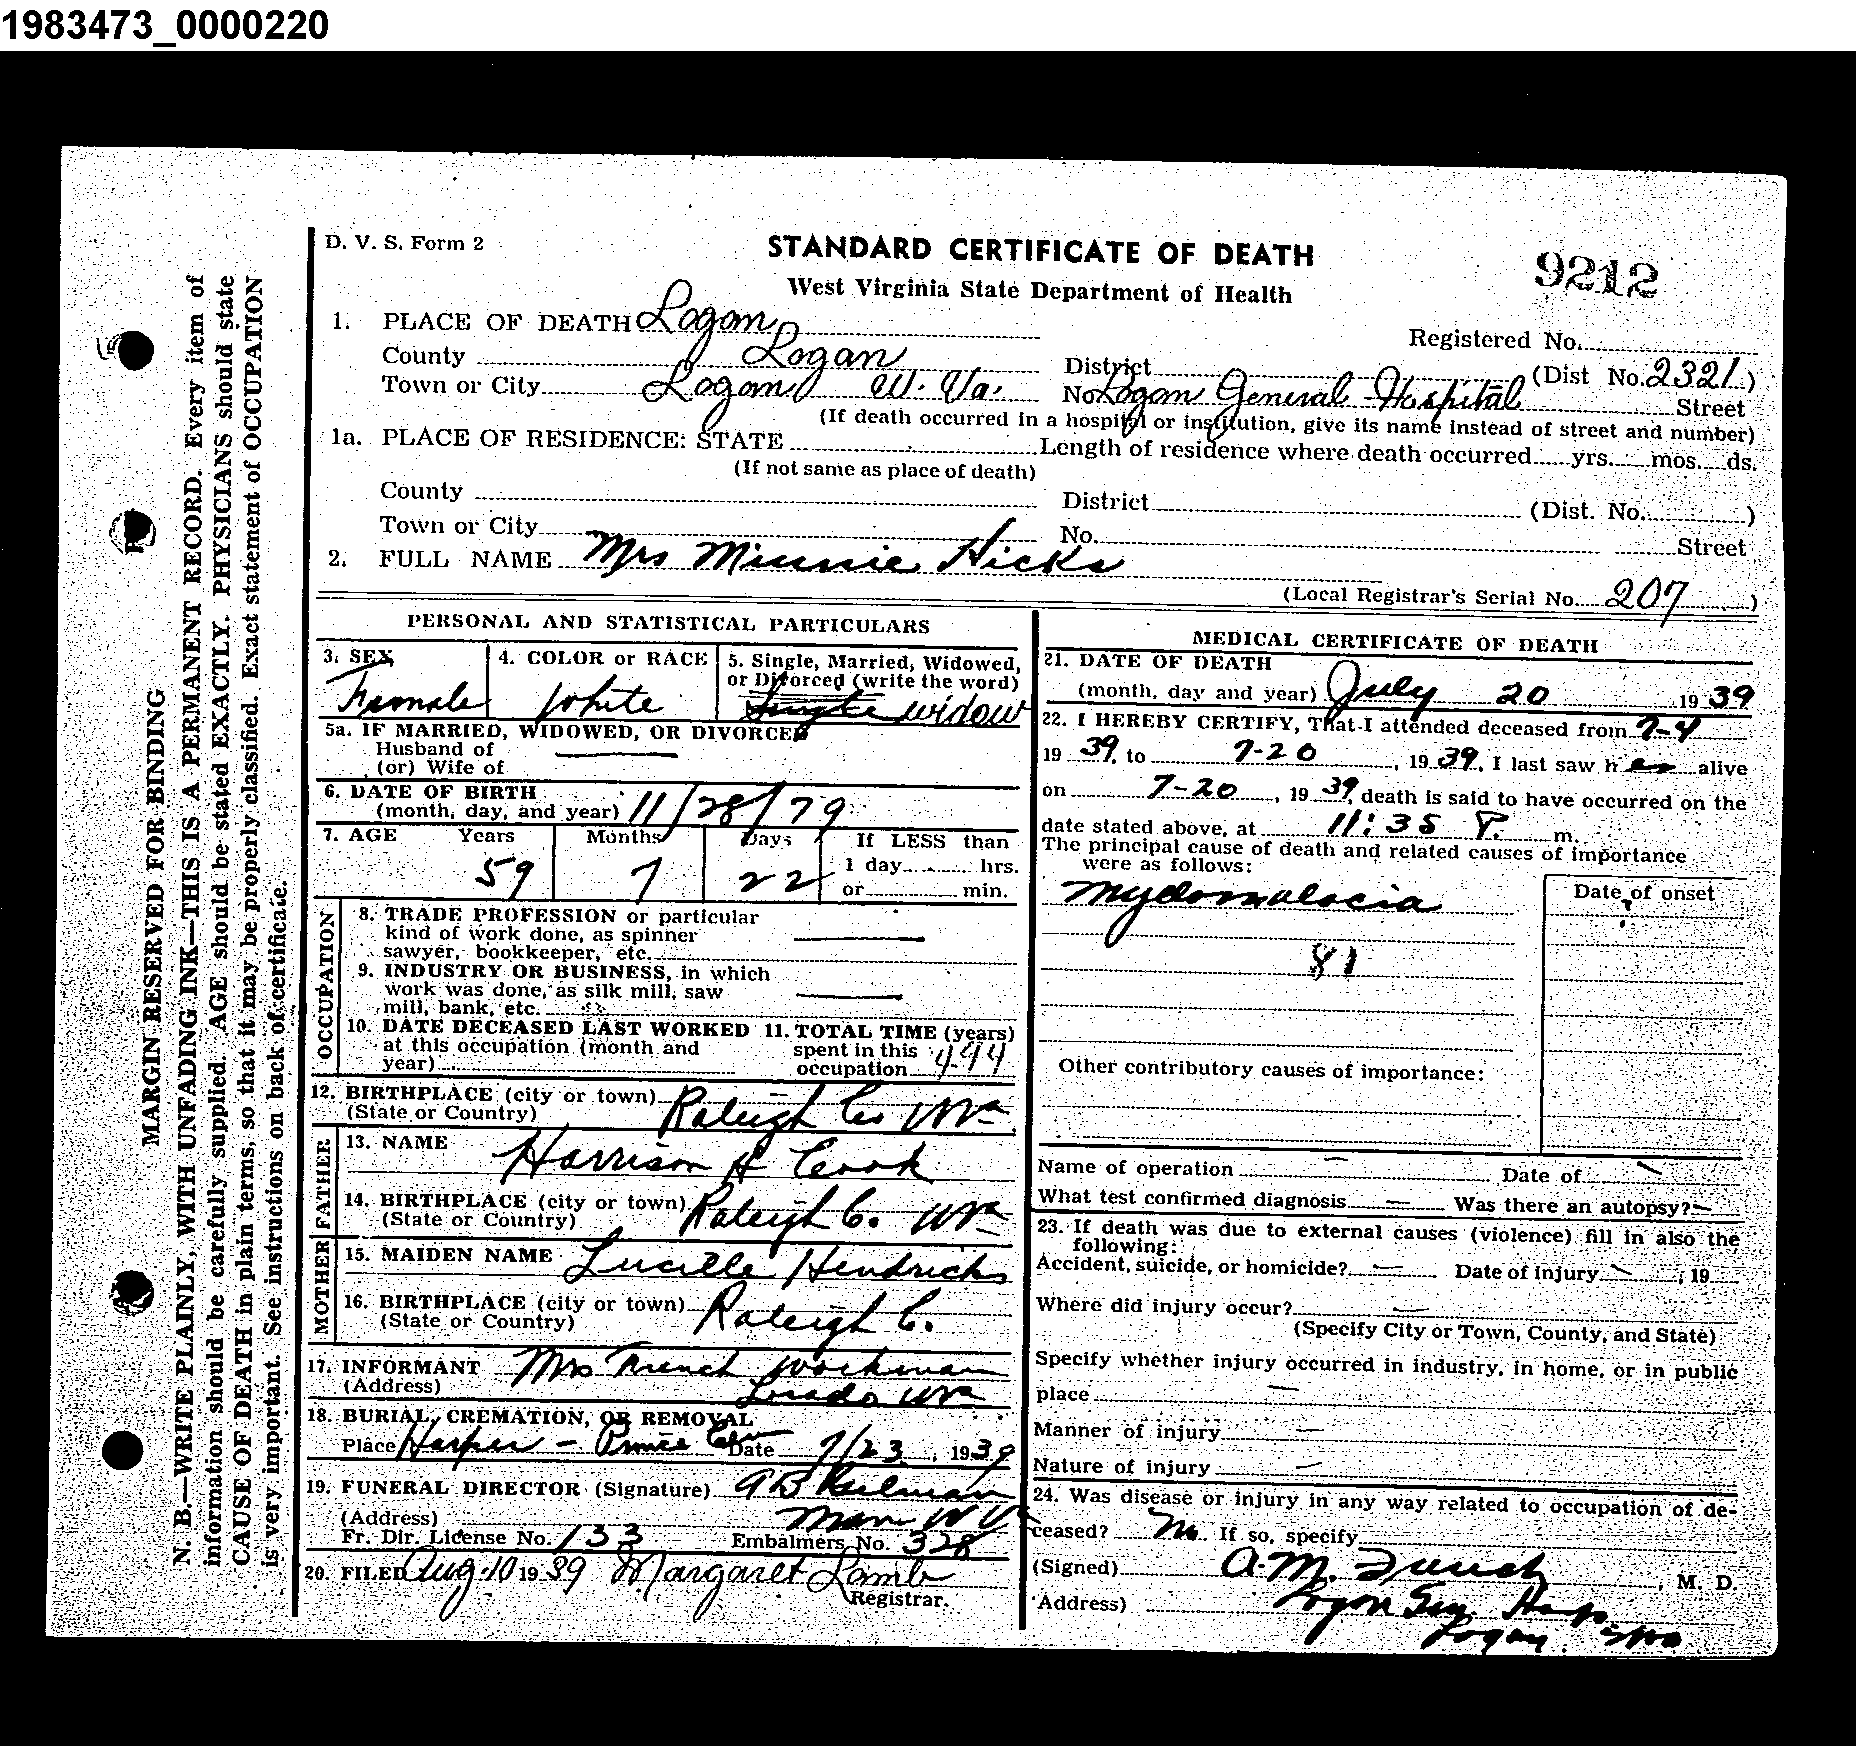 1983473_0000220
D. V. S. Form 2
STANDARD CERTIFICATE OF DEATH
9212
West Virginia State Department of Health
1. PLACE OF DEATH Logan
Registered No.
County Logan District (Dist No. 2321)
Town or City Logan W. Va. No. Logan General Hospital Street
(If death occurred in a hospital or institution, give its name instead of street and number)
1a. PLACE OF RESIDENCE: STATE Length of residence where death occurred yrs. mos. ds.
(If not same as place of death)
County District (Dist. No. )
Town or City No. Street
2. FULL NAME Mrs Minnie Hicks
(Local Registrar's Serial No. 207)
MARGIN RESERVED FOR BINDING
N. B.—WRITE PLAINLY, WITH UNFADING INK—THIS IS A PERMANENT RECORD. Every item of
information should be carefully supplied. AGE should be stated EXACTLY. PHYSICIANS should state
CAUSE OF DEATH in plain terms, so that it may be properly classified. Exact statement of OCCUPATION
is very important. See instructions on back of certificate.
PERSONAL AND STATISTICAL PARTICULARS
3. SEX Female
4. COLOR or RACE White
5. Single, Married, Widowed,
or Divorced (write the word)
Single Widow
5a. IF MARRIED, WIDOWED, OR DIVORCED
Husband of
(or) Wife of
6. DATE OF BIRTH
(month, day, and year) 11/28/79
7. AGE Years Months Days If LESS than
59 7 22 1 day hrs.
or min.
OCCUPATION
8. TRADE PROFESSION or particular
kind of work done, as spinner
sawyer, bookkeeper, etc.
9. INDUSTRY OR BUSINESS, in which
work was done, as silk mill, saw
mill, bank, etc.
10. DATE DECEASED LAST WORKED
at this occupation (month and
year)
11. TOTAL TIME (years)
spent in this
occupation
12. BIRTHPLACE (city or town) Raleigh Co WVa
(State or Country)
FATHER
13. NAME Harrison H Cook
14. BIRTHPLACE (city or town) Raleigh C. WVa
(State or Country)
MOTHER
15. MAIDEN NAME Lucille Hendricks
16. BIRTHPLACE (city or town) Raleigh C.
(State or Country)
17. INFORMANT Mrs French Workman
(Address) Lorado WVa
18. BURIAL, CREMATION, OR REMOVAL
Place Harper - Prince Cem Date 7/23, 1939
19. FUNERAL DIRECTOR (Signature)
(Address) Man W V
Fr. Dir. License No. 133 Embalmers No. 328
20. FILED Aug. 10 1939 Margaret Lamb
Registrar.
MEDICAL CERTIFICATE OF DEATH
21. DATE OF DEATH
(month, day and year) July 20 1939
22. I HEREBY CERTIFY, That I attended deceased from 7-4
1939, to 7-20, 1939, I last saw her alive
on 7-20, 1939, death is said to have occurred on the
date stated above, at 11:35 P. m.
The principal cause of death and related causes of importance
were as follows:
Date of onset
Myelomalacia
81
Other contributory causes of importance:
Name of operation — Date of
What test confirmed diagnosis — Was there an autopsy? —
23. If death was due to external causes (violence) fill in also the
following:
Accident, suicide, or homicide? — Date of injury , 19
Where did injury occur? —
(Specify City or Town, County, and State)
Specify whether injury occurred in industry, in home, or in public
place —
Manner of injury —
Nature of injury —
24. Was disease or injury in any way related to occupation of de-
ceased? No. If so, specify
(Signed) A. M. French, M. D.
(Address) Logan Gen Hosp
Logan WVa